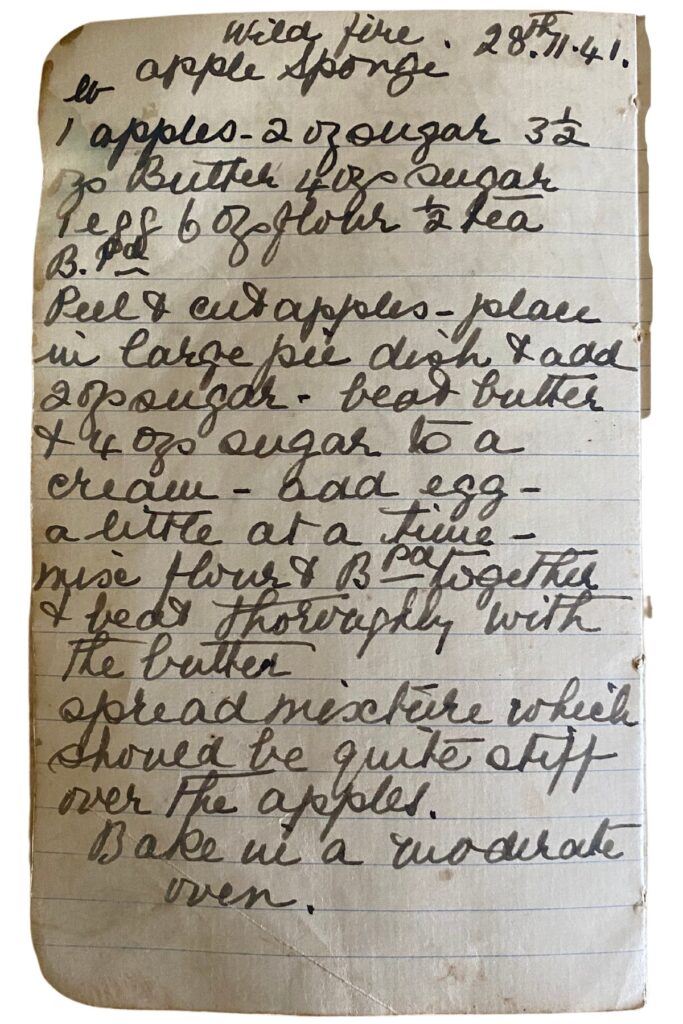 Wild fire. 28.th 11.41.
apple Sponge
lb
1 apples - 2 oz sugar 3½
ozs Butter 4 ozs sugar
1 egg 6 ozs flour ½ tea
B. Pd
Peel & cut apples - place
in large pie dish & add
2 ozs sugar - beat butter
& 4 ozs sugar to a
cream - add egg -
a little at a time -
mix flour & B Pd together
& beat thoroughly with
the butter
spread mixture which
should be quite stiff
over the apples.
Bake in a moderate
oven.